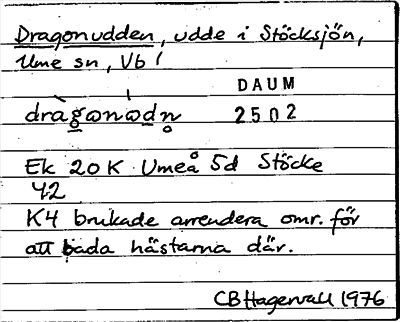 Dragonudden, udde i Stöcksjön,
Ume sn, Vb /
DAUM
dràgωnωdn̥ 2502
Ek 20K Umeå 5d Stöcke
42
K4 brukade arrendera omr. för
att bada hästarna där.
CBHagervall 1976